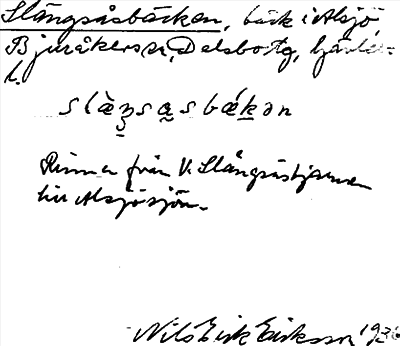 Slängsåsbäcken, bäck i Alsjö,
Bjuråkers sn, Delsbo tg, Gävle-
l.
slàŋsasbǽkən
Rinner från V. Slångåstjärnen
till Alsjösjön.
Nils Erik Eriksson 1936